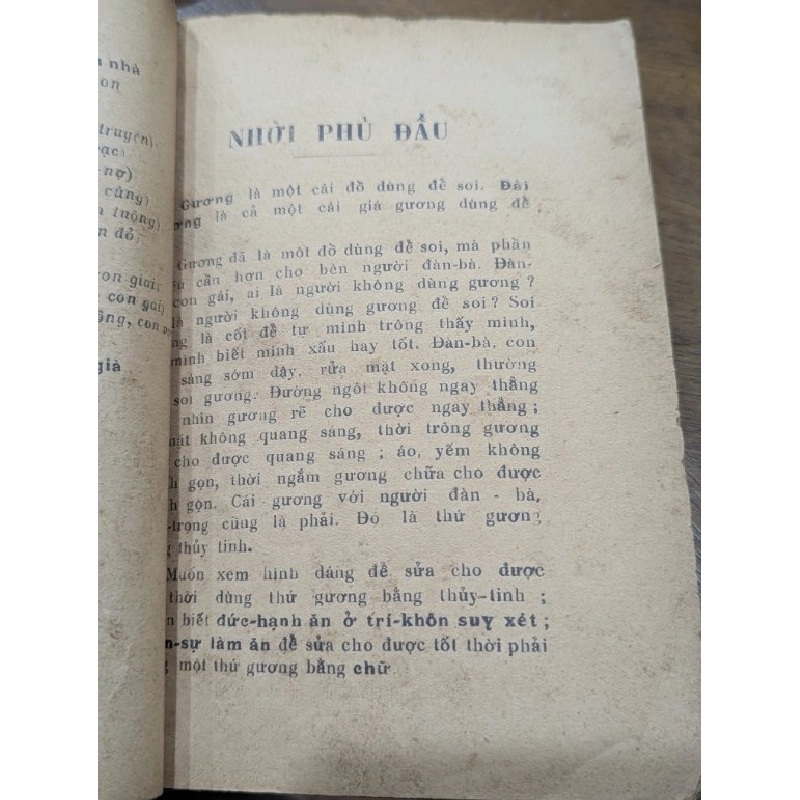 nhà
on
truyện)
vạc)
-nợ)
cúng)
tuộng)
đỏ,
on giai;
con gái)
ông, con
già
NHỜI PHỦ ĐẦU
Gương là một cái đồ dùng để soi. Đài
ương là cả một cái giá gương dùng để
Gương đã là một đồ dùng để soi, mà phần
cần hơn cho bên người đàn-bà. Đàn-
con gái, ai là người không dùng gương?
là người không dùng gương để soi? Soi
ng là cốt để tự mình trông thấy mình,
mình biết mình xấu hay tốt. Đàn-bà, con
sáng sớm dậy, rửa mặt xong, thường
soi gương. Đường ngôi không ngay thẳng
nhìn gương rẽ cho được ngay thẳng;
mặt không quang sáng, thời trông gương
cho được quang sáng; áo, yếm không
h gọn, thời ngắm gương chữa cho được
h gọn. Cái gương với người đàn-bà,
-trọng cũng là phải. Đó là thứ gương
g thủy tinh.
Muốn xem hình dáng để sửa cho được
thời dùng thứ gương bằng thủy-tinh;
n biết đức-hạnh ăn ở trí-khôn suy xét;
n-sự làm ăn để sửa cho được tốt thời phải
g một thứ gương bằng chữ